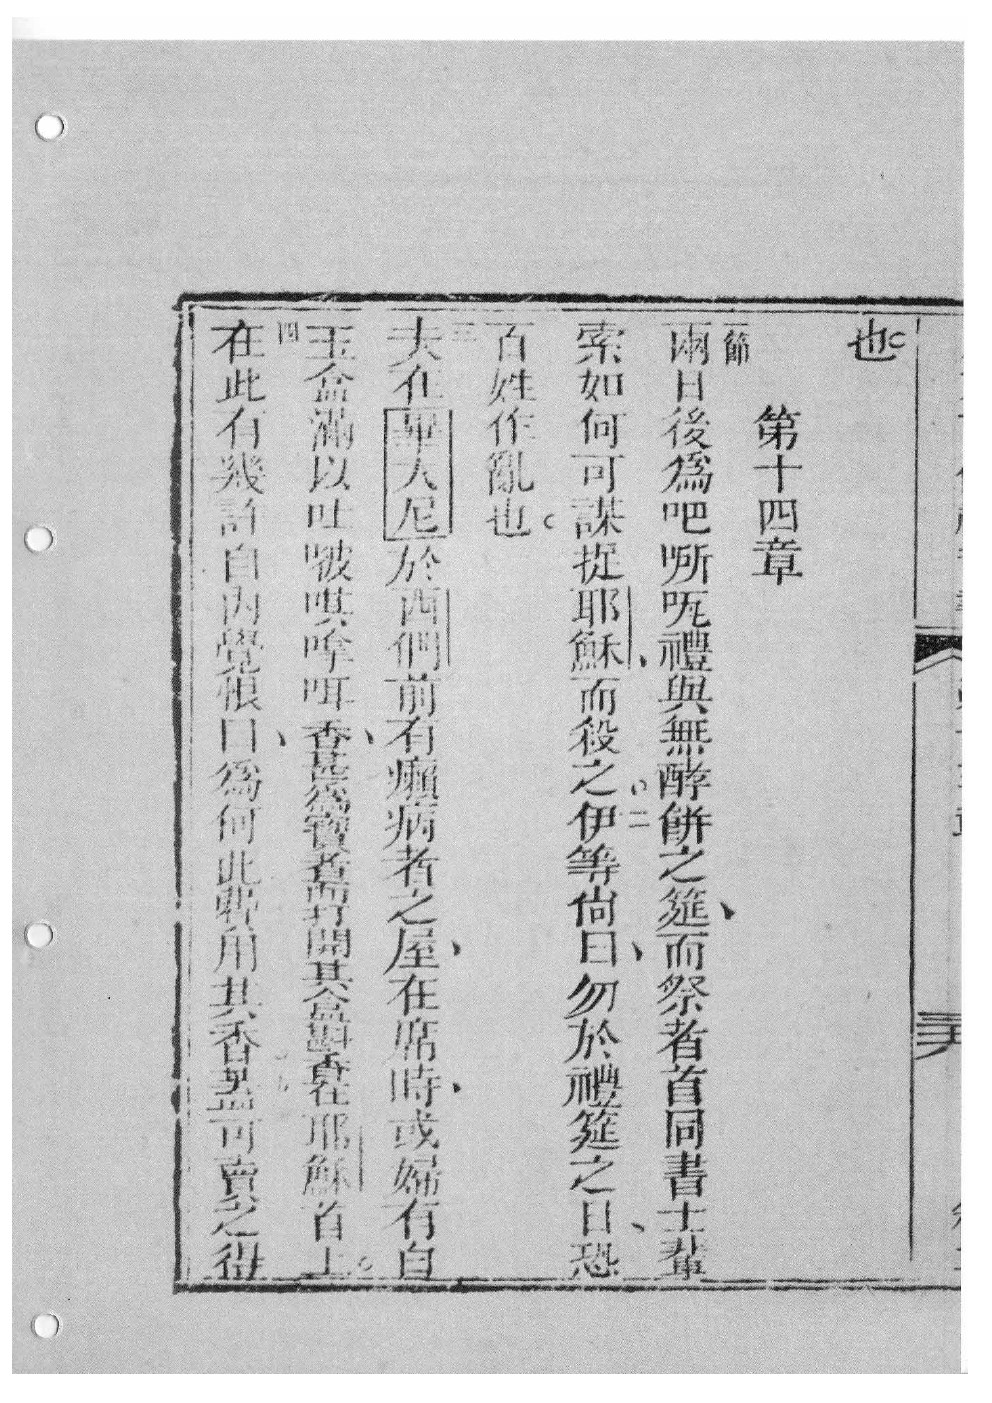 也
第十四章
一節
兩日後爲吧所㕵禮與無酵餅之筵而祭者首同書士輩
索如何可謀捉耶穌而殺之二伊等尙曰勿於禮筵之日恐
百姓作亂也
三
夫在畢大尼於西們前有癩病者之屋在席時或婦有白
玉盒滿以吐㗑唭嗱咡香甚爲寶者而打開其盒斟香在耶穌首上
四
在此有幾許自內覺恨曰爲何此輕用其香葢可賣之得